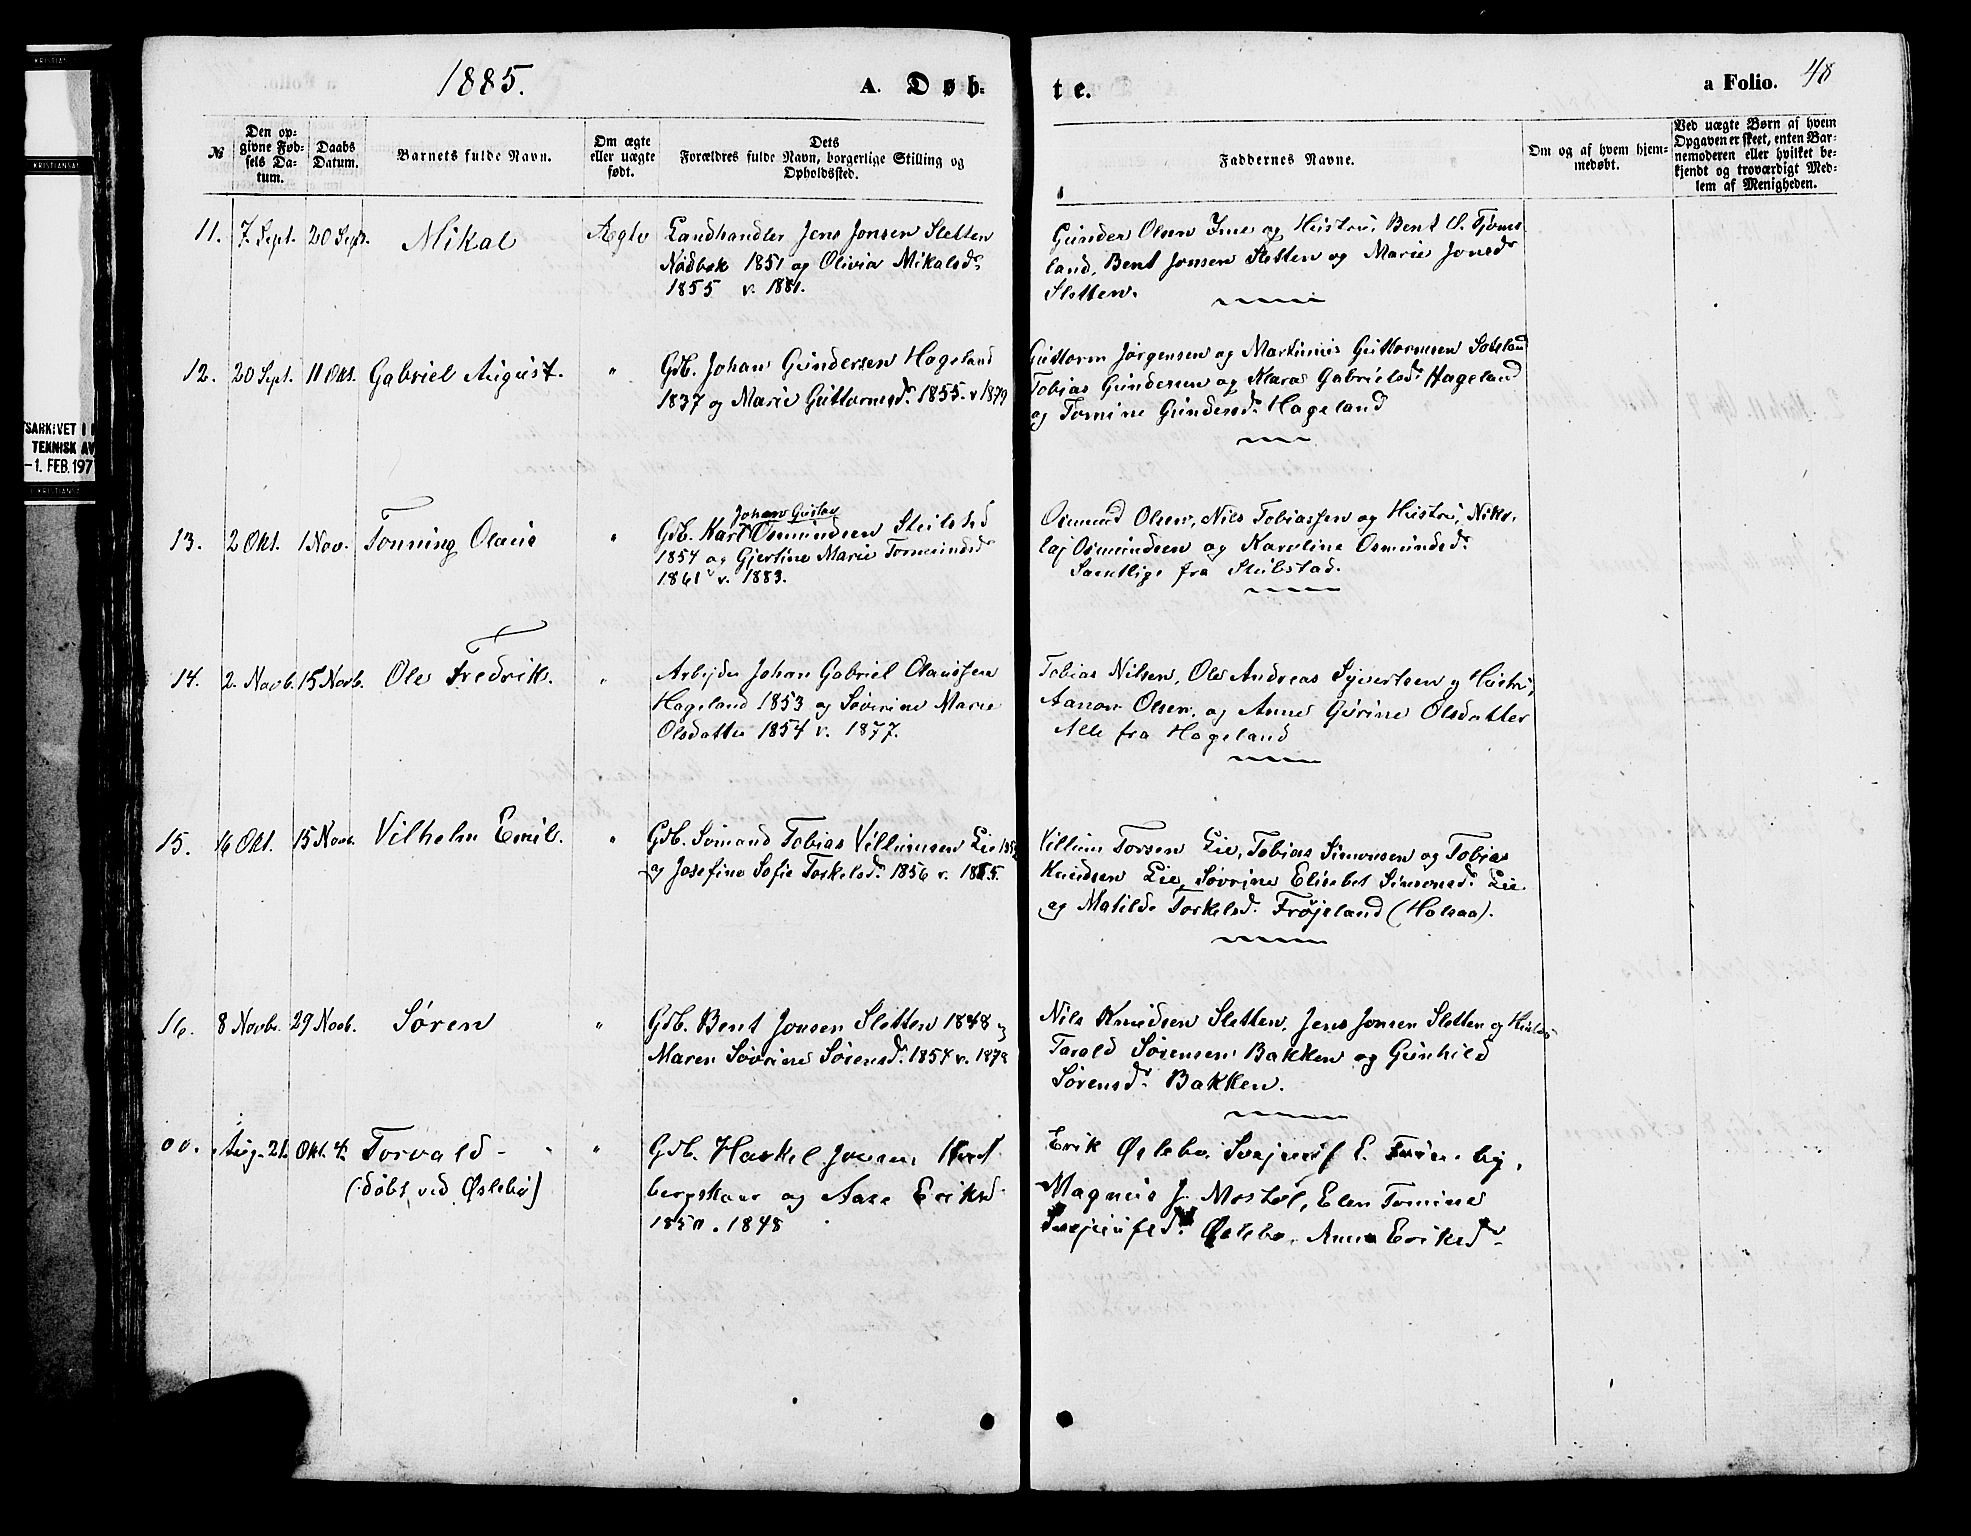 1885.
A. Døb-
te.
a Folio. 48
№
Den op-
givne Fød-
sels Da-
tum.
Daabs
Datum.
Barnets fulde Navn.
Om ægte
eller uægte
født.
Dets
Forældres fulde Navn, borgerlige Stilling og
Opholdssted.
Faddernes Navne.
Om og af hvem hjem-
medøbt.
Ved uægte Børn af hvem
Opgaven er skeet, enten Bar-
nemoderen eller hvilket be-
kjendt og troværdigt Med-
lem af Menigheden.
11. 7. Sept. 20 Sept. Mikal Ægte
Landhandler Jens Jonsen Sletten
Nødbæk 1851 og Olivia Mikalsd.
1855 v. 1881.
Gunder Olsen Ime og Hustru, Bent S. Tjoms
land, Bent Jonsen Sletten og Marie Jonsd.
Sletten.
12. 20 Sept. 11 Okt. Gabriel August. "
Gdb. Johan Gundersen Hageland
1837 og Marie Guttormsd. 1855. v 1879
Guttorm Jørgensen og Martinius Guttormsen
Tobias Gundersen og Klara Gabrielsd. Hageland
og Tomine Gundersd. Hageland
13. 2 Okt. 1 Nov. Tonning Olaus "
Johan Gustav
Gdb. Karl Osmundsen
1854 og Gjertine Marie Tormundsd
1861 v. 1883.
Osmund Olsen, Nils Tobiassen og Hustru, Niko-
laj Osmundsen og Karoline Osmundsd.
Samtlige fra Stubstad.
14. 2. Novb. 15 Novb. Ole Fredrik. "
Arbejder Johan Gabriel Olaussen
Hageland 1853 og Søverine Marie
Olsdatter 1854 v. 1877.
Tobias Nilsen, Ole Andreas Syvertsen og Hustru,
Aanon Olsen, og Anne Gurine Olsdatter
Alle fra Hageland
15. 16 Okt. 15 Novb. Vilhelm Emil. "
Gdb. Simond Tobias Villumsen Lie
og Josefine Sofie Torkelsd. 1856 v. 1885.
Villum Torsen Lie, Tobias Simonsen og Tobias
Knudsen Lie, Søvrine Elisabet Simonsd. Lie
og Matilde Torkelsd. Frøjsland (Holsaa).
16. 8 Novb. 29 Novb. Søren "
Gdb. Bent Jonsen Sletten 1848 og
Maren Søvrine Sørensd. 1854 v. 1878
Nils Knudsen Sletten, Jens Jonsen Sletten og Hustru
Tarald Sørensen Bakken og Gunhild
Sørensd. Bakken.
00. Aug. 21. Okt. 4. Torvald - " "
(døbt ved Øslebø)
Gdb. Haskel
og Aase Eriksd.
1850. 1848
Erik Øslebø
Magnus J. Mostøl, Elen Tomine
Øslebø, Anna Eriksd.
KRISTIANSA
KRISTIANSA
TSARKIVET I
TEKNISK AV
-1. FEB. 197
KRISTIANSA